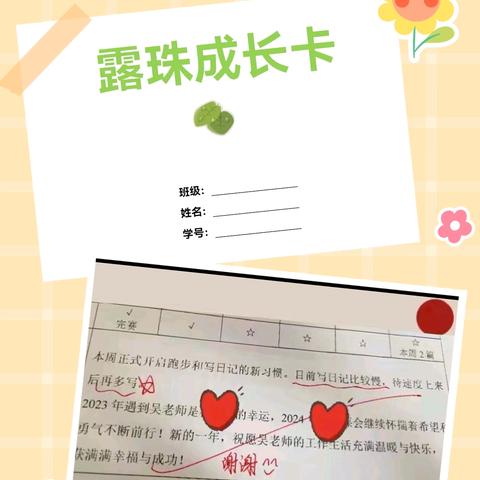 露珠成长卡
班级：
姓名：
学号：
完赛
本周2篇
本周正式开启跑步和写日记的新习惯。目前写日记比较慢，待速度上来
后再多写
2023年遇到吴老师是 的幸运，2024 会继续怀揣着希望和
勇气不断前行！新的一年，祝愿吴老师的工作生活充满温暖与快乐，
满满幸福与成功！
谢谢